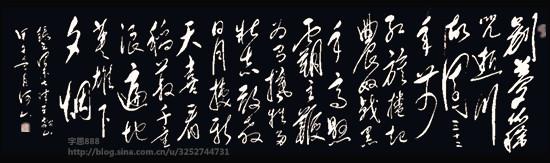 別夢依稀
咒逝川
故園三十二
年前
紅旗捲起
農奴戟黑
手高懸
霸主鞭
為有犧牲多
壯志敢教
日月換新
天喜看
稻菽千重
浪遍地
英雄下
夕烟
字思888
http://blog.sina.com.cn/u/3252744731